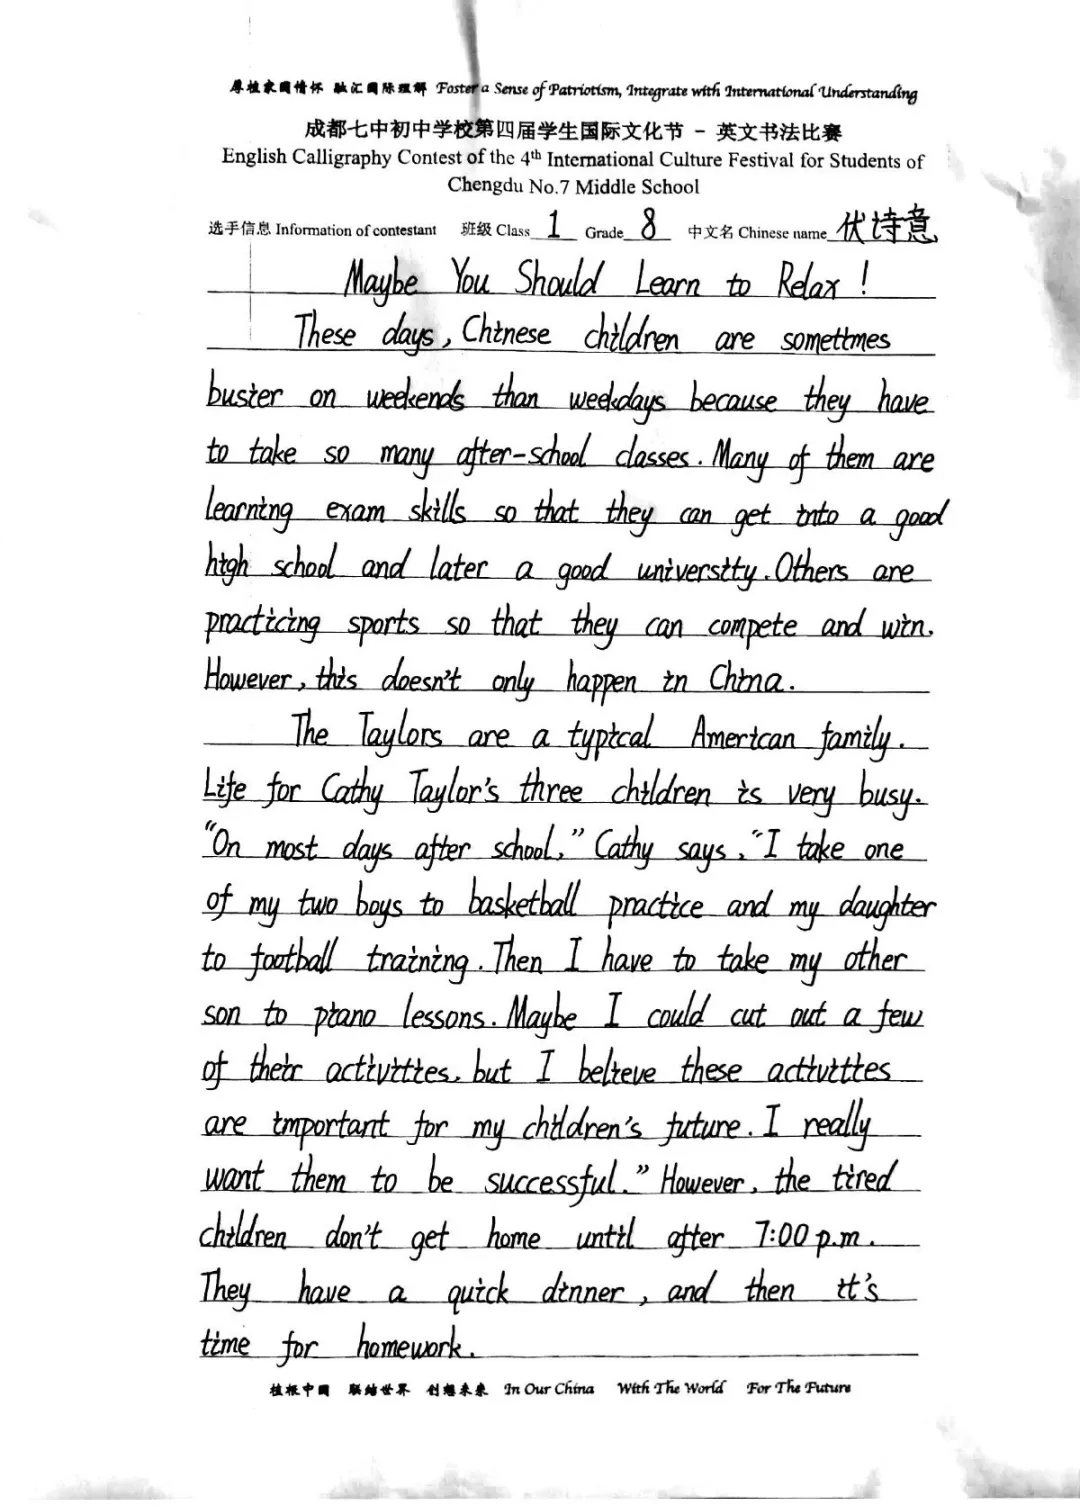 厚植家国情怀 融汇国际理解 Foster a Sense of Patriotism, Integrate with International Understanding
成都七中初中学校第四届学生国际文化节 - 英文书法比赛
English Calligraphy Contest of the 4th International Culture Festival for Students of
Chengdu No.7 Middle School
选手信息 Information of contestant 班级 Class 1 Grade 8 中文名 Chinese name 伏诗意
Maybe You Should Learn to Relax !
These days, Chinese children are sometimes
busier on weekends than weekdays because they have
to take so many after-school classes. Many of them are
learning exam skills so that they can get into a good
high school and later a good university. Others are
practicing sports so that they can compete and win.
However, this doesn't only happen in China.
The Taylors are a typical American family.
Life for Cathy Taylor's three children is very busy.
"On most days after school," Cathy says, "I take one
of my two boys to basketball practice and my daughter
to football training. Then I have to take my other
son to piano lessons. Maybe I could cut out a few
of their activities, but I believe these activities
are important for my children's future. I really
want them to be successful." However, the tired
children don't get home until after 7:00 p.m.
They have a quick dinner, and then it's
time for homework.
植根中国 联结世界 创想未来 In Our China With The World For The Future